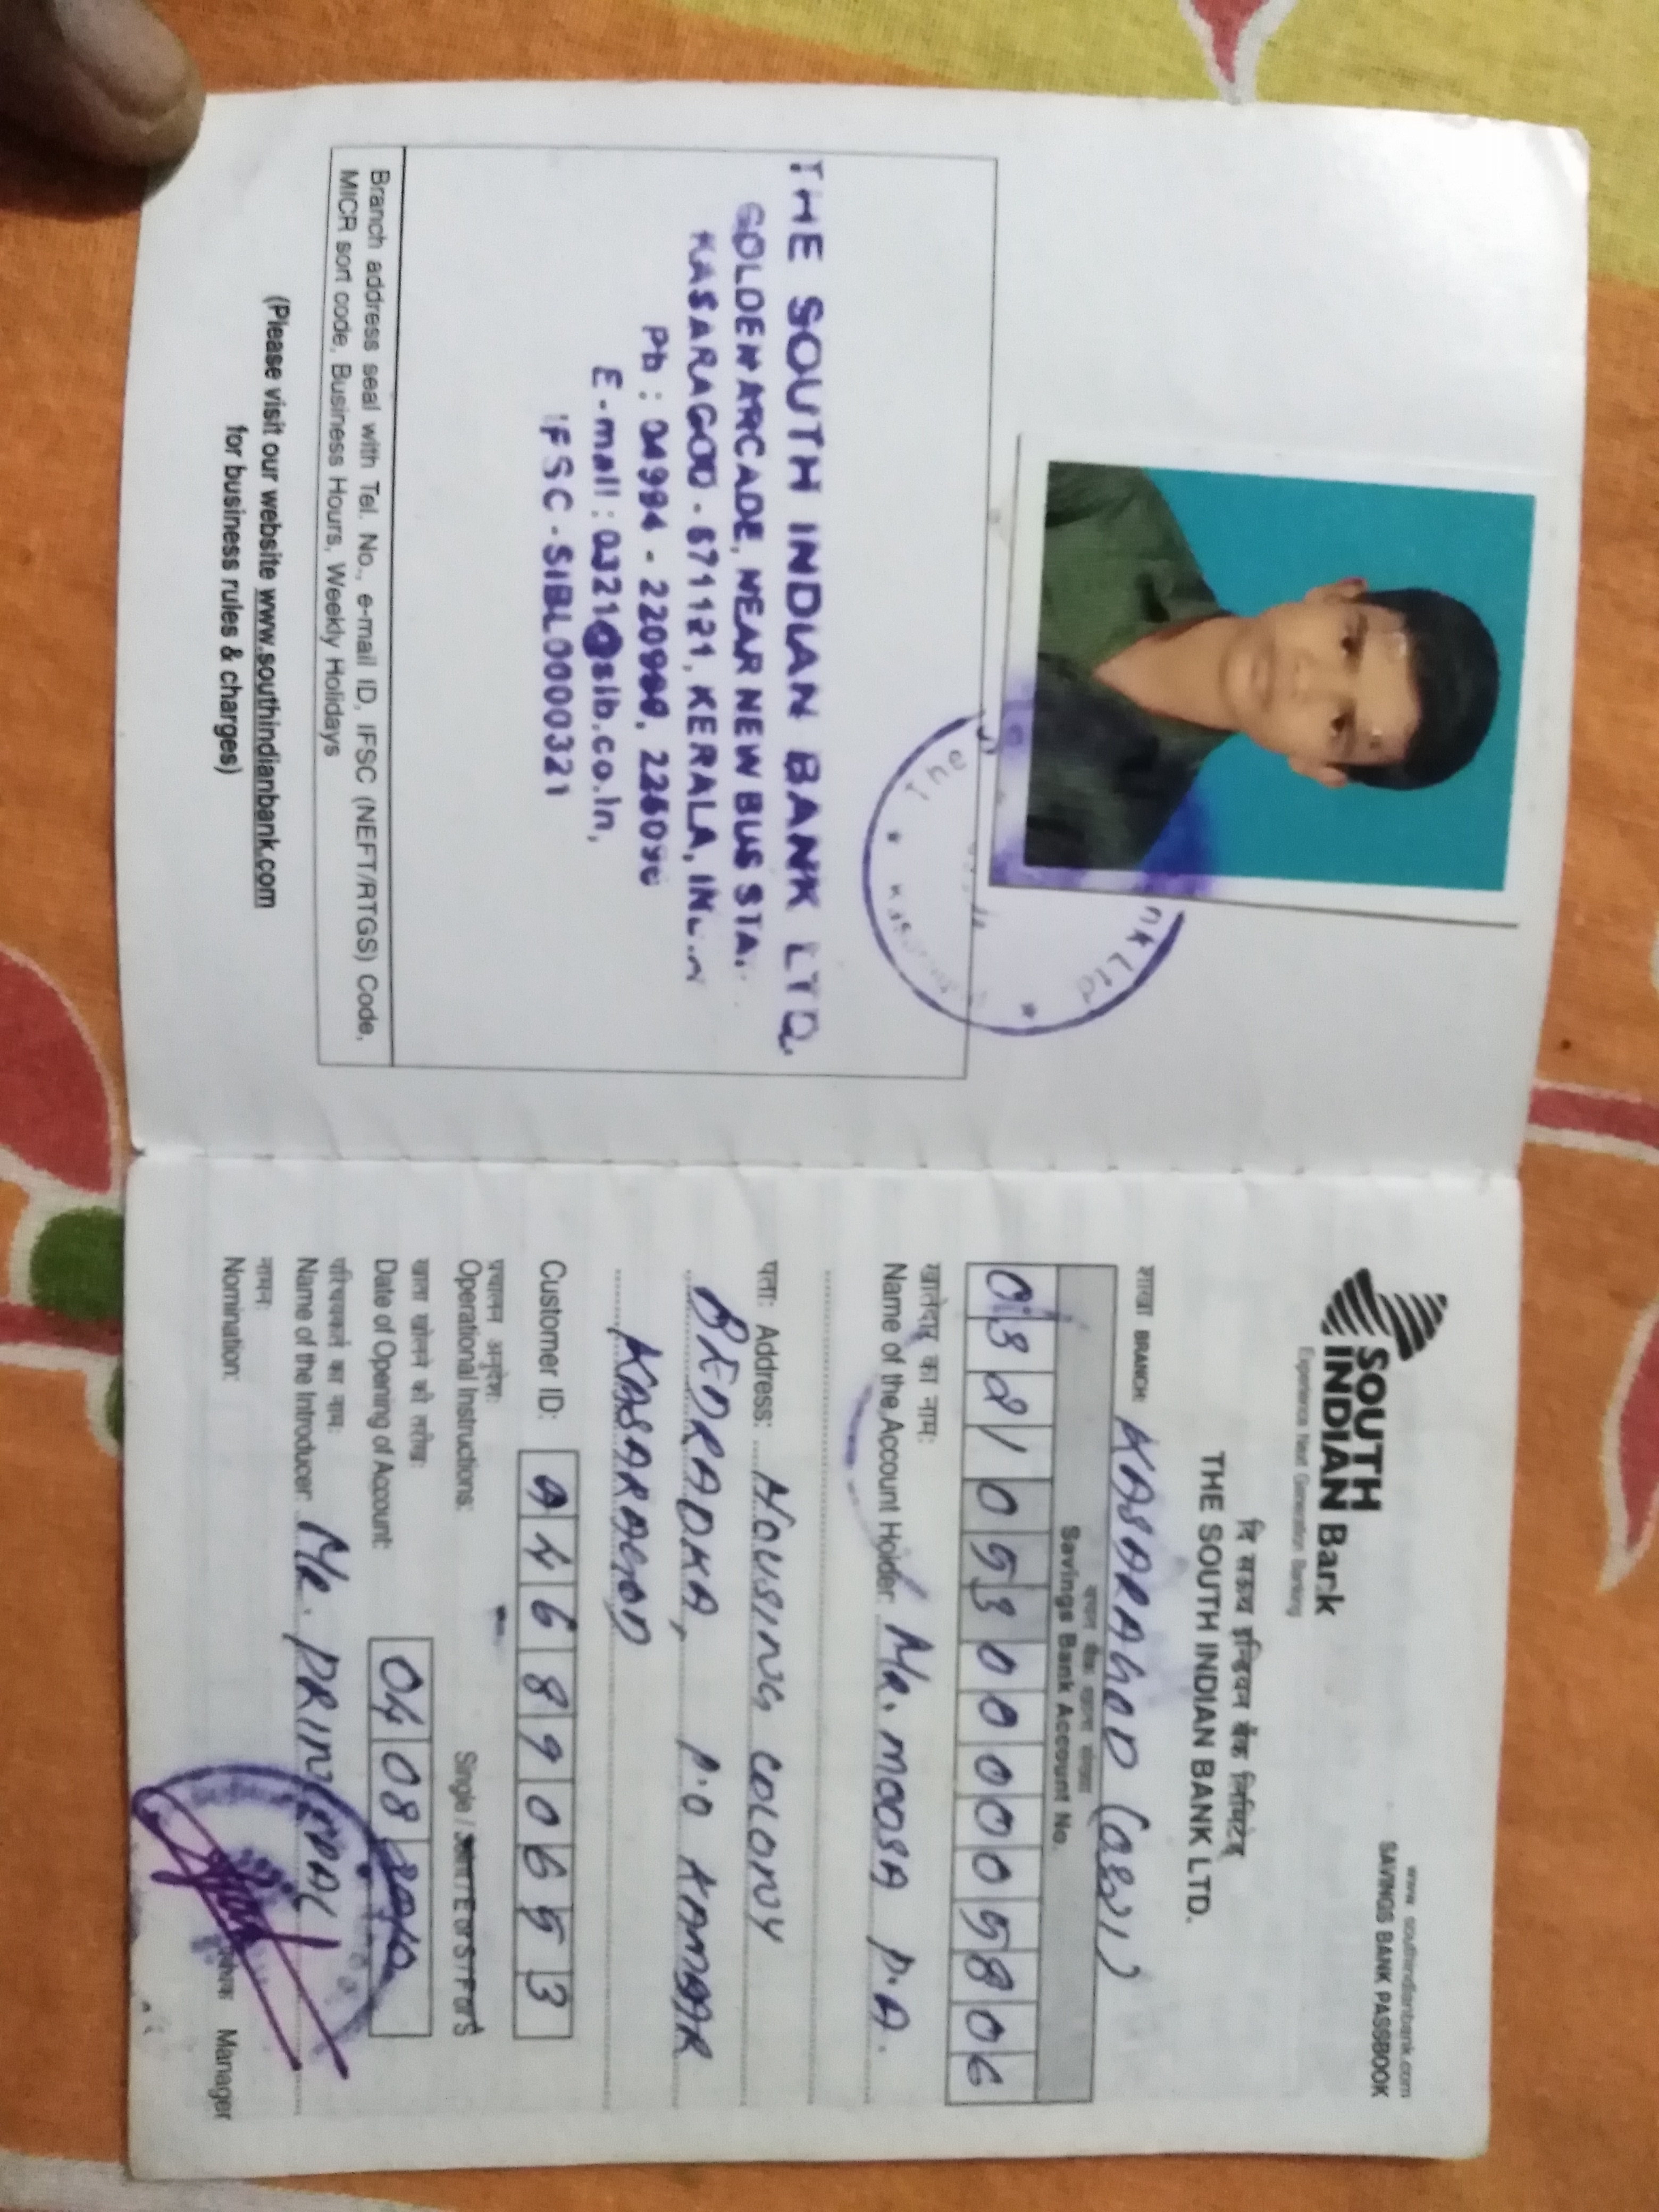 THE SOUTH INDIAN BANK LTD.
GOLDEN ARCADE, NEAR NEW BUS STA
KASARAGOD - 671121, KERALA,
Ph : 04994 -
E-mail : 0321@sib.co.in,
IFSC - SIBL0000321
The
nk Ltd
Branch address seal with Tel. No., e-mail ID, IFSC (NEFT/RTGS) Code,
MICR sort code, Business Hours, Weekly Holidays
(Please visit our website www.southindianbank.com
for business rules & charges)
www. southindianbank.com
SAVINGS BANK PASSBOOK
SOUTH
INDIAN Bank
Experience Next Generation Banking
दि साउथ इन्डियन बैंक लिमिटेड
THE SOUTH INDIAN BANK LTD.
शाखा BRANCH: KASARAGOD (0321)
बचत बैंक खाता संख्या
Savings Bank Account No.
0321053000005806
खातेदार का नाम:
Name of the Account Holder: Mr. MOOSA P.A.
पता: Address: HOUSING COLONY
BEDRADKA, P.O KAMBAR
KASARAGOD
Customer ID: A46890653
प्रचालन अनुदेश:
Operational Instructions: Single /
खाता खोलने की तारीख:
Date of Opening of Account: 04 08
परिचयकर्ता का नाम:
Name of the Introducer: Mr. PRINCIPAL
नामन:
Nomination:
Manager